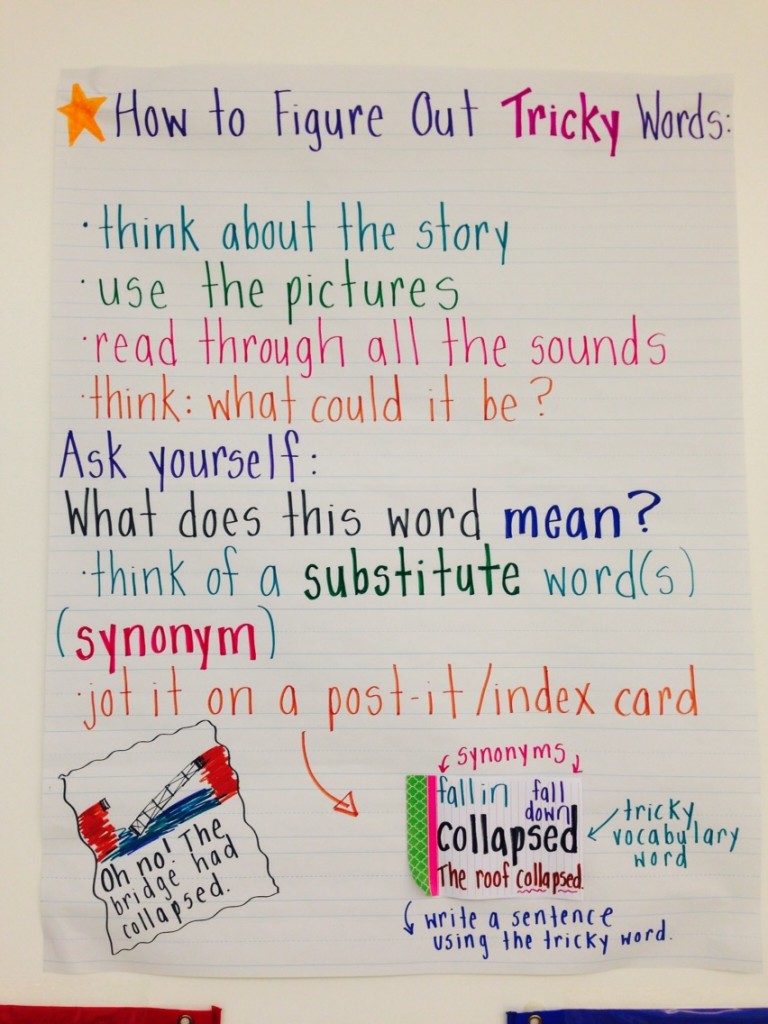 How to Figure Out Tricky Words:
·think about the story
·use the pictures
·read through all the sounds
·think: what could it be?
Ask yourself:
What does this word mean?
·think of a substitute word(s)
(synonym)
·jot it on a post-it/index card
Oh no! The
bridge had
collapsed.
synonyms
fall in fall
down
collapsed
The roof collapsed.
tricky
vocabulary
word
write a sentence
using the tricky word.